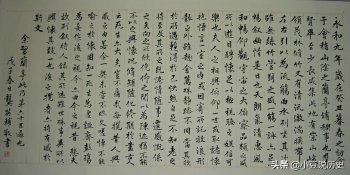 永和九年歲在癸丑暮春之初會
于會稽山陰之蘭亭脩稧事也羣
賢畢至少長咸集此地有崇山峻
領茂林脩竹又有清流激湍暎帶
左右引以為流觴曲水列坐其次
雖無絲竹管弦之盛一觴一詠亦足以
暢叙幽情是日也天朗氣清惠風
和暢仰觀宇宙之大俯察品類之盛
所以遊目騁懷足以極視聽之娛信可
樂也夫人之相與俯仰一世或取諸懷
抱悟言一室之內或因寄所託放浪形
骸之外雖趣舍萬殊靜躁不同當其欣
於所遇蹔得於己快然自足不知老之
將至及其所之既惓情隨事遷感慨係
之矣向之所欣俛仰之間以為陳迹猶不能
不以之興懷況脩短隨化終期於盡古人
云死生亦大矣豈不痛哉每攬昔人興
感之由若合一契未嘗不臨文嗟悼不能
喻之於懷固知一死生為虛誕齊彭殤
為妄作後之視今亦由今之視昔悲夫
故列敘時人錄其所述雖世殊事異所以
興懷其致一也後之攬者亦將有感於
斯文
余習蘭亭此乃第八十通也
戊子春日敬書
头条 @小豆说历史